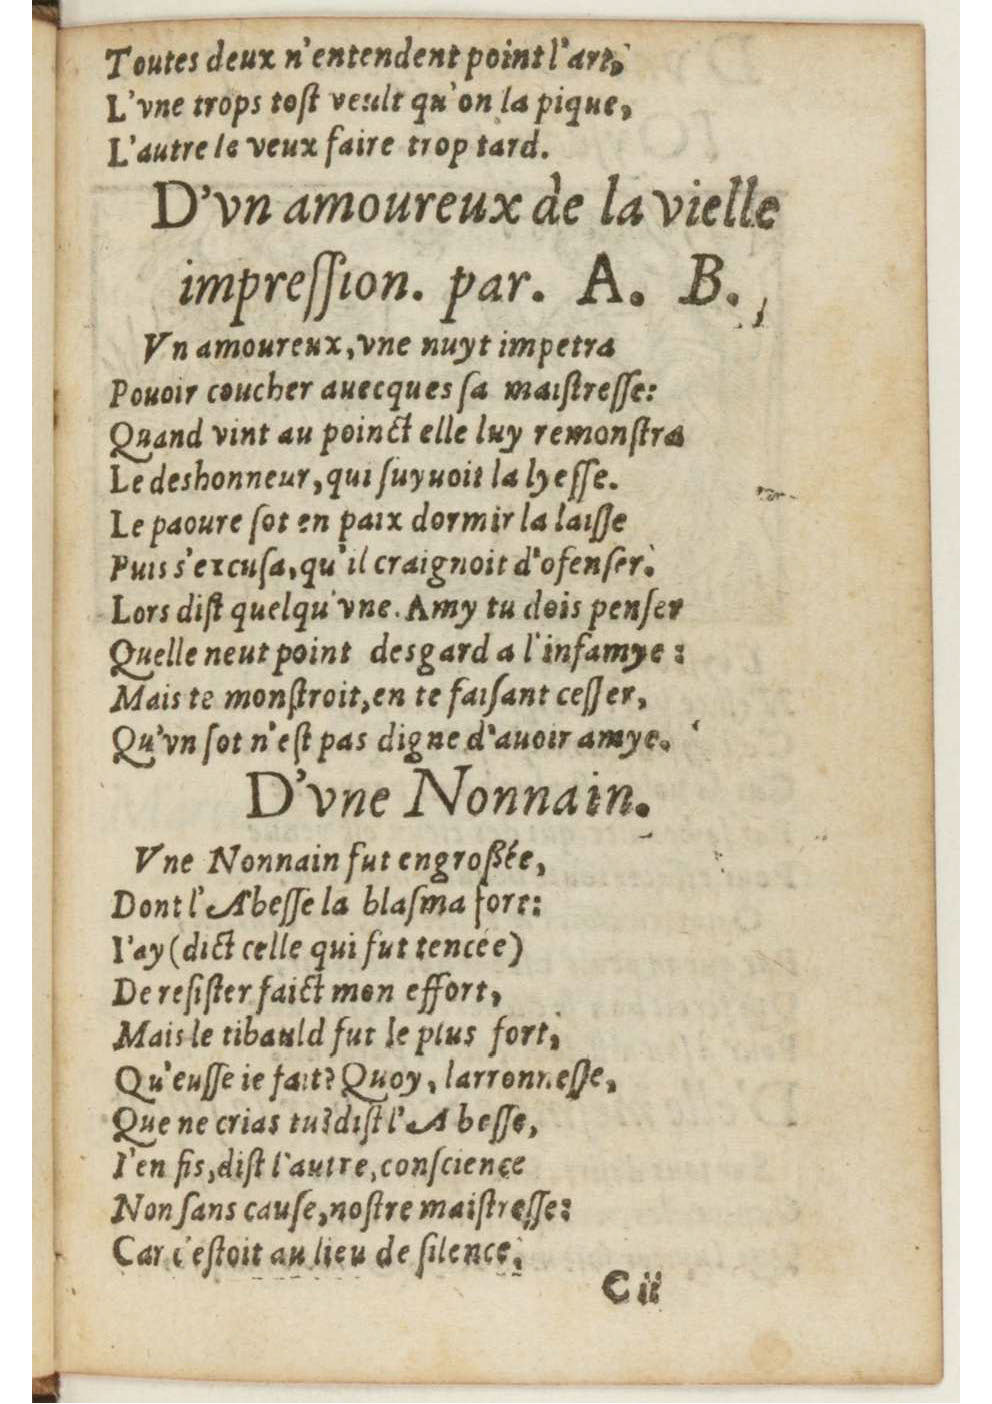 Toutes deux n'entendent point l'art,
L'vne trops tost veult qu'on la pique,
L'autre le veux faire trop tard.
D'vn amoureux de la vielle
impreſſion. par. A. B.,
Vn amoureux, vne nuyt impetra
Pouoir coucher auecques ſa maiſtreſſe:
Quand vint au poinct elle luy remonſtra
Le deshonneur, qui ſuyuoit la lyeſſe.
Le paoure ſot en paix dormir la laiſſe
Puis s'excuſa, qu'il craignoit d'ofenſer.
Lors diſt quelqu'vne. Amy tu dois penſer
Quelle neut point desgard a l'infamye:
Mais te monſtroit, en te faiſant ceſſer,
Qu'vn ſot n'eſt pas digne d'auoir amye.
D'vne Nonnain.
Vne Nonnain fut engroßée,
Dont l'Abeſſe la blaſma fort:
I'ay (dict celle qui fut tencée)
De reſiſter faict mon effort,
Mais le tibauld fut le plus fort,
Qu'euſſe ie fait? Quoy, larronneſſe,
Que ne crias tu? diſt l'Abeſſe,
I'en fis, diſt l'autre, conſcience
Non ſans cauſe, noſtre maiſtreſſe:
Car c'eſtoit au lieu de ſilence,
C ii